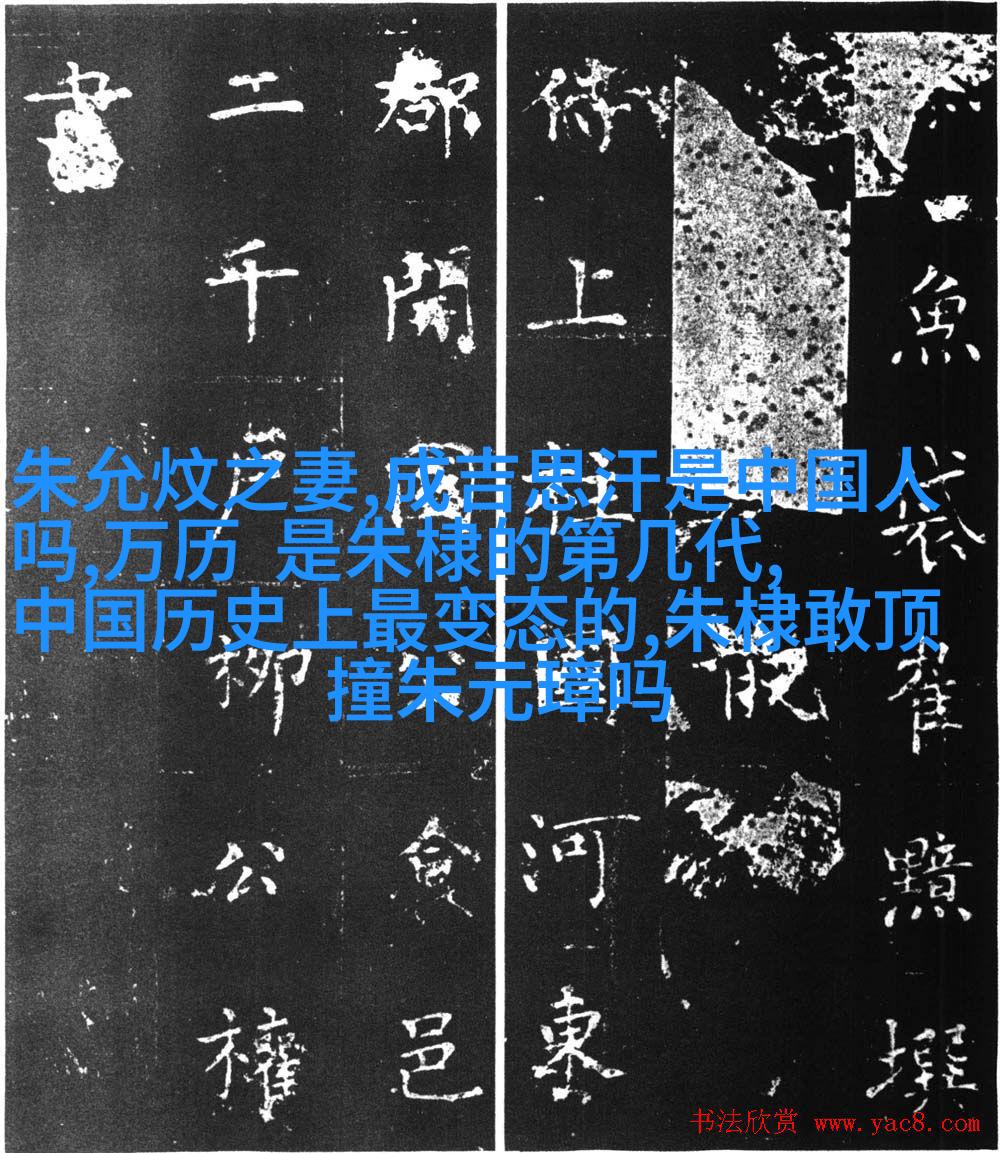 朱允炆之妻,成吉思汗是中国人
吗,万历 是朱棣的第几代,
中国历史上最变态的,朱棣敢顶
撞朱元璋吗
魚袋崔黯撰
侍上柱國河東
都開國公食邑
二千戶柳公權
書
书法欣赏 www.yac8.com